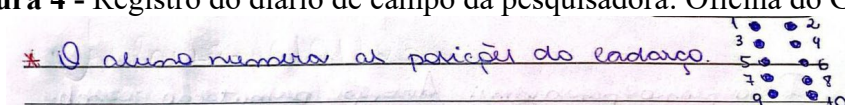 ura 4 - Registro do diário de campo da pesquisadora. Oficina do C
* O aluno numera as posições do cadarço.
1 2
3 4
5 6
7 8
9 10